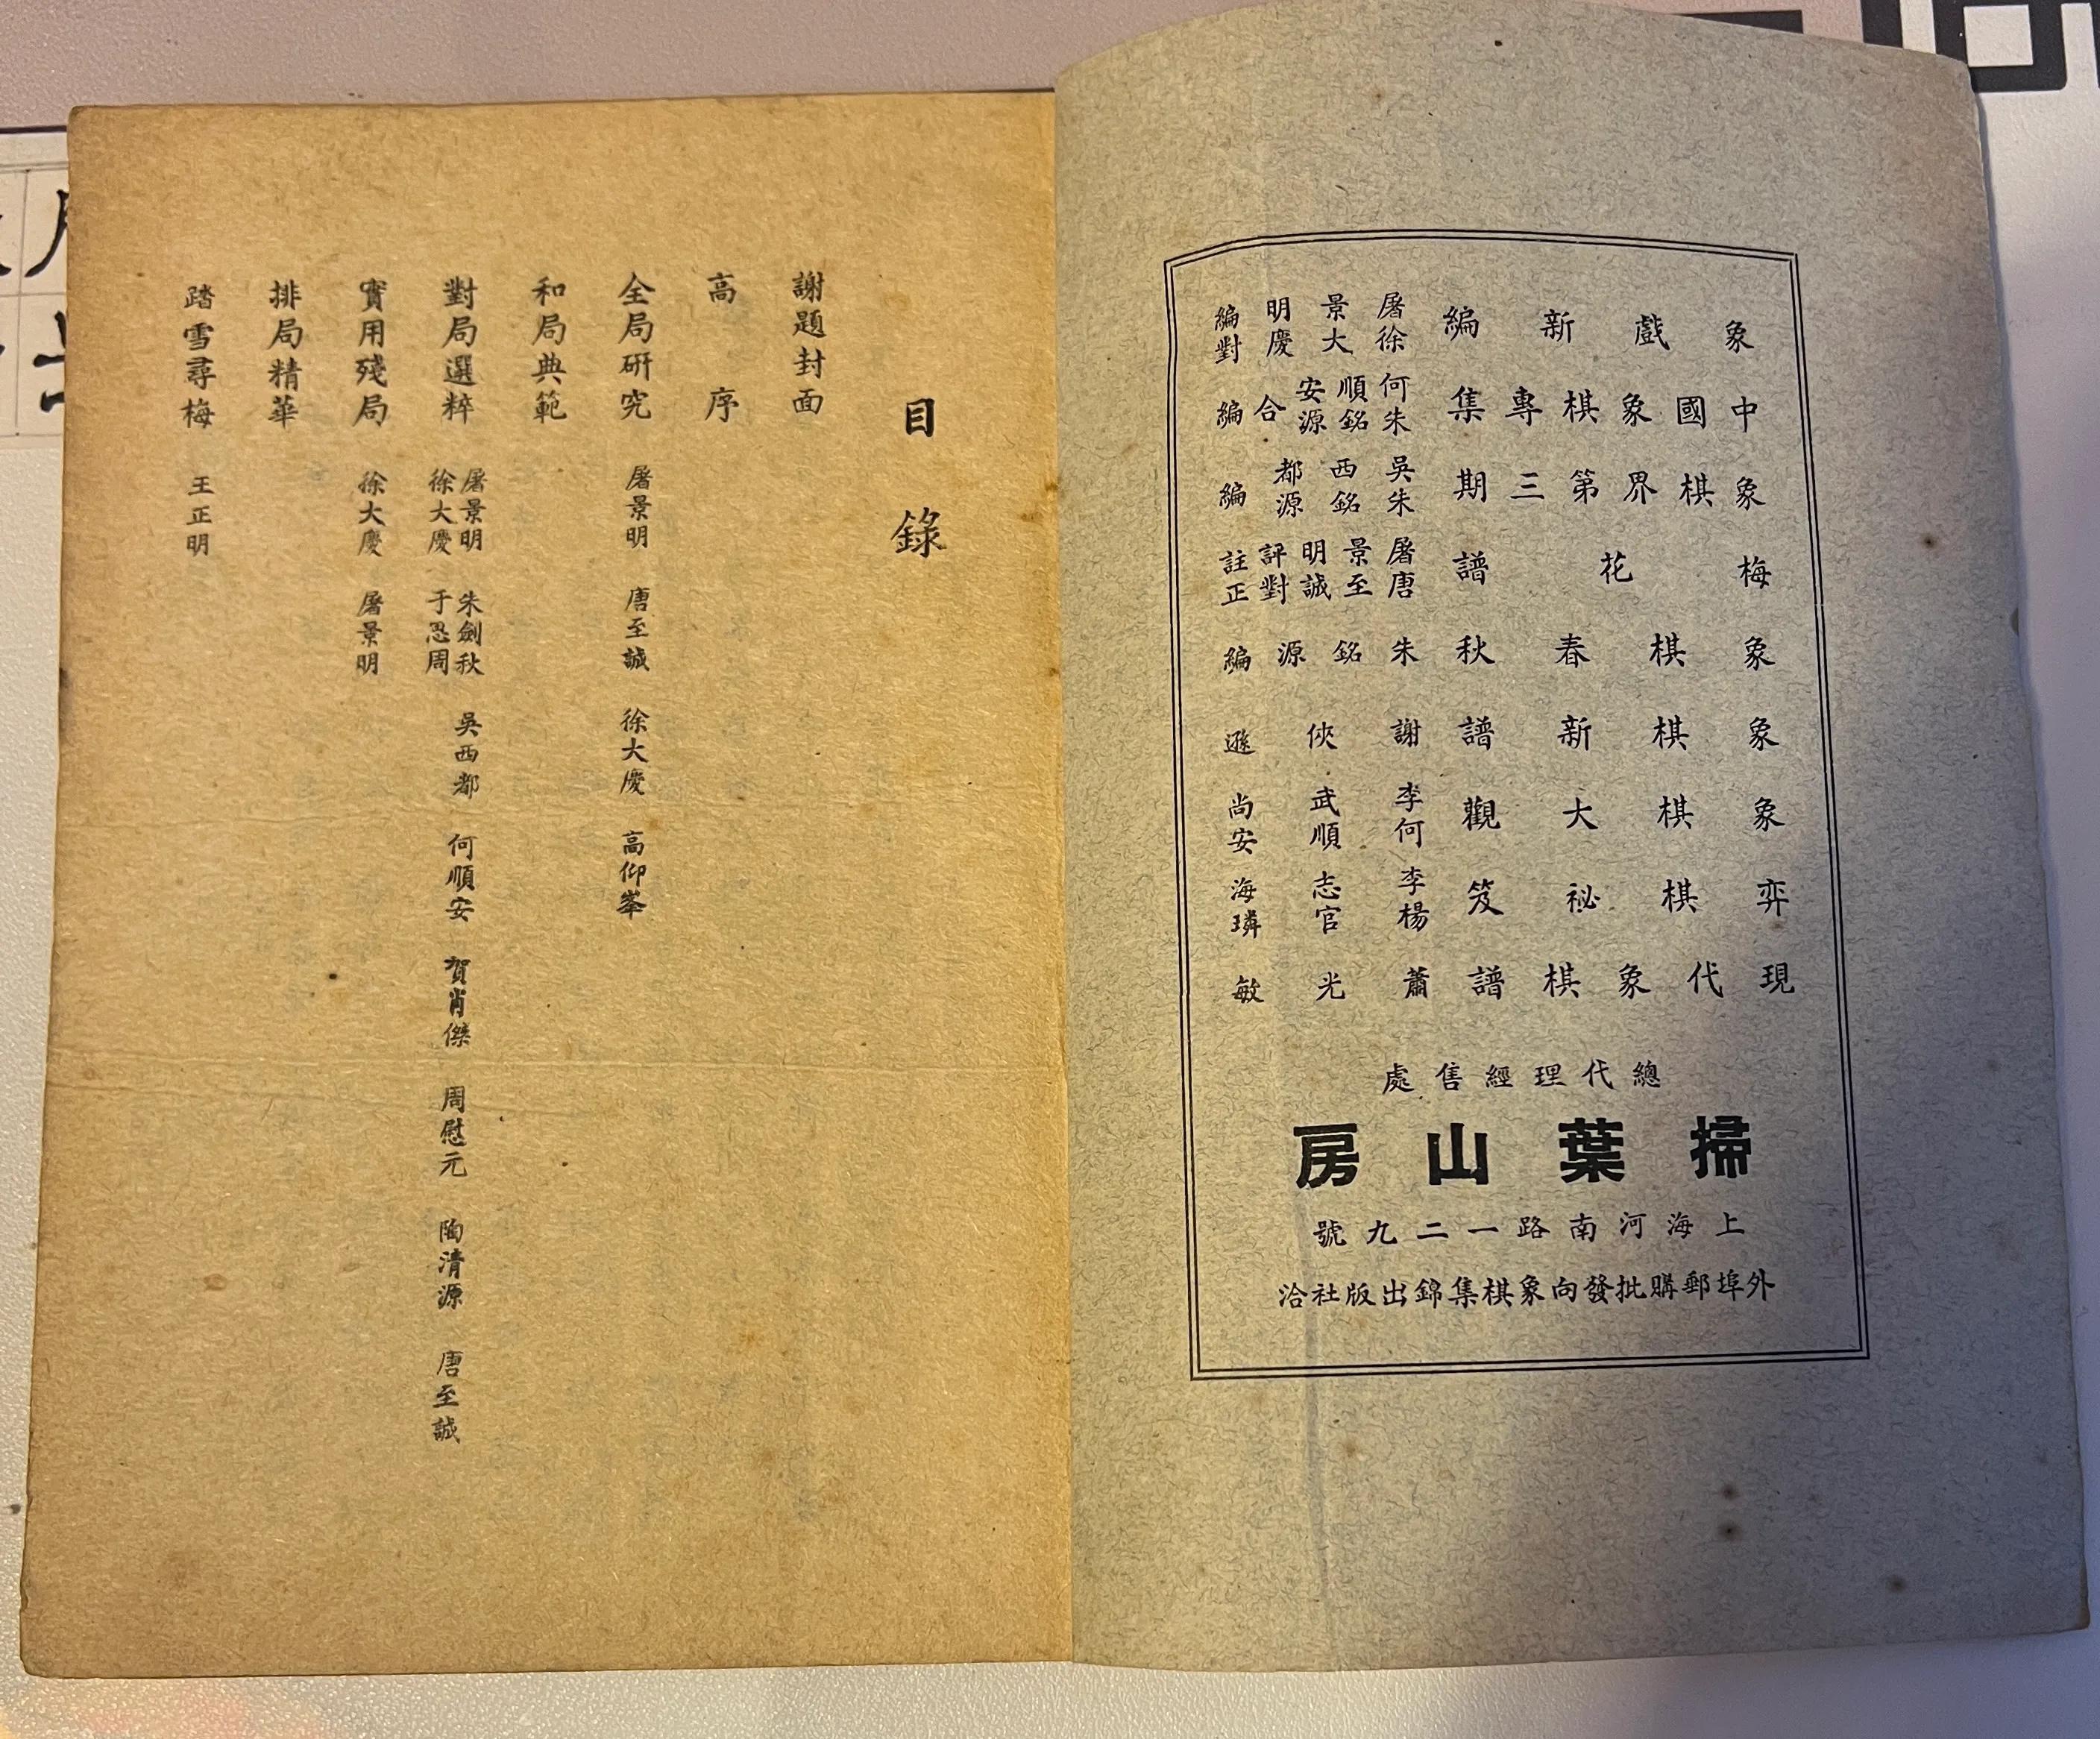 象戲新編 屠景明編
徐大慶對
中國象棋專集 何順安
朱銘源合編
象棋界第三期 吳西都
朱銘源編
梅花譜 屠景明評註
唐至誠對正
象棋春秋 朱銘源編
象棋新譜 謝俠遜
象棋大觀 李武尚
何順安
弈棋祕笈 李志海
楊官璘
現代象棋譜 蕭光敏
總代理經售處
掃葉山房
上海河南路一二九號
外埠郵購批發向象棋集錦出版社洽
目錄
謝題封面
高序
全局研究 屠景明 唐至誠 徐大慶 高仰峯
和局典範
對局選粹 屠景明 朱劍秋 吳西都 何順安 賀肖傑 周慰元 陶清源 唐至誠
徐大慶 于忍周
實用殘局 徐大慶 屠景明
排局精華
踏雪尋梅 王正明